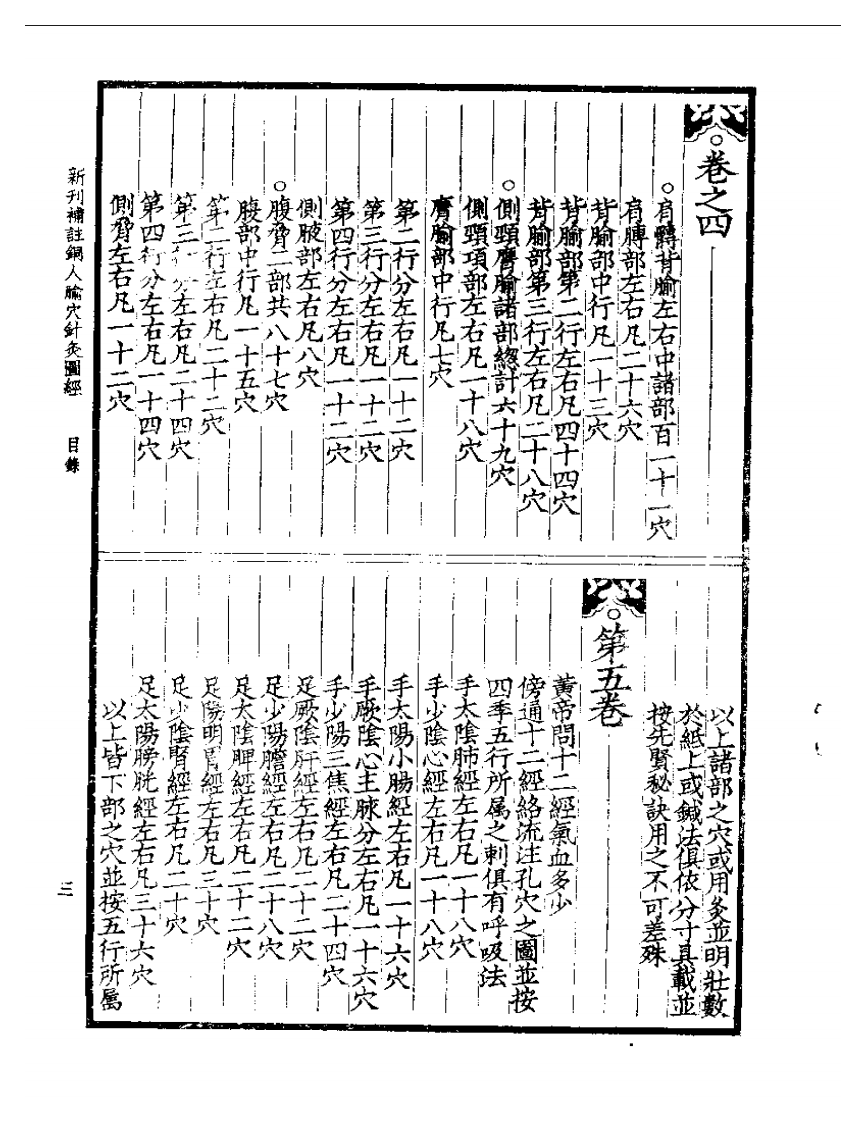 卷之四
○肩髆背腧左右中諸部百一十一穴
肩膊部左右凡二十六穴
背腧部中行凡一十三穴
背腧部第二行左右凡四十四穴
背腧部第三行左右凡二十八穴
○側頸膺腧諸部總計六十九穴
側頸項部左右凡一十八穴
膺腧部中行凡七穴
第二行分左右凡一十二穴
第三行分左右凡一十二穴
第四行分左右凡一十二穴
側腋部左右凡八穴
○腹脅二部共八十七穴
腹部中行凡一十五穴
第二行左右凡二十二穴
第三行分左右凡二十四穴
第四行分左右凡一十四穴
側脅左右凡一十二穴
以上諸部之穴或用灸並明壯數
於紙上或鍼法俱依分寸具載並
按先賢秘訣用之不可差殊
○第五卷
黃帝問十二經氣血多少
傍通十二經絡流注孔穴之圖並按
四季五行所属之刺俱有呼吸法
手太陰肺經左右凡一十八穴
手少陰心經左右凡一十八穴
手太陽小腸經左右凡一十六穴
手厥陰心主脉分左右凡一十六穴
手少陽三焦經左右凡二十四穴
足厥陰肝經左右凡二十二穴
足少陽膽經左右凡二十八穴
足太陰脾經左右凡二十二穴
足陽明胃經左右凡三十穴
足少陰腎經左右凡二十穴
足太陽膀胱經左右凡三十六穴
以上皆下部之穴並按五行所属
新刊補註銅人腧穴針灸圖經 目錄
三